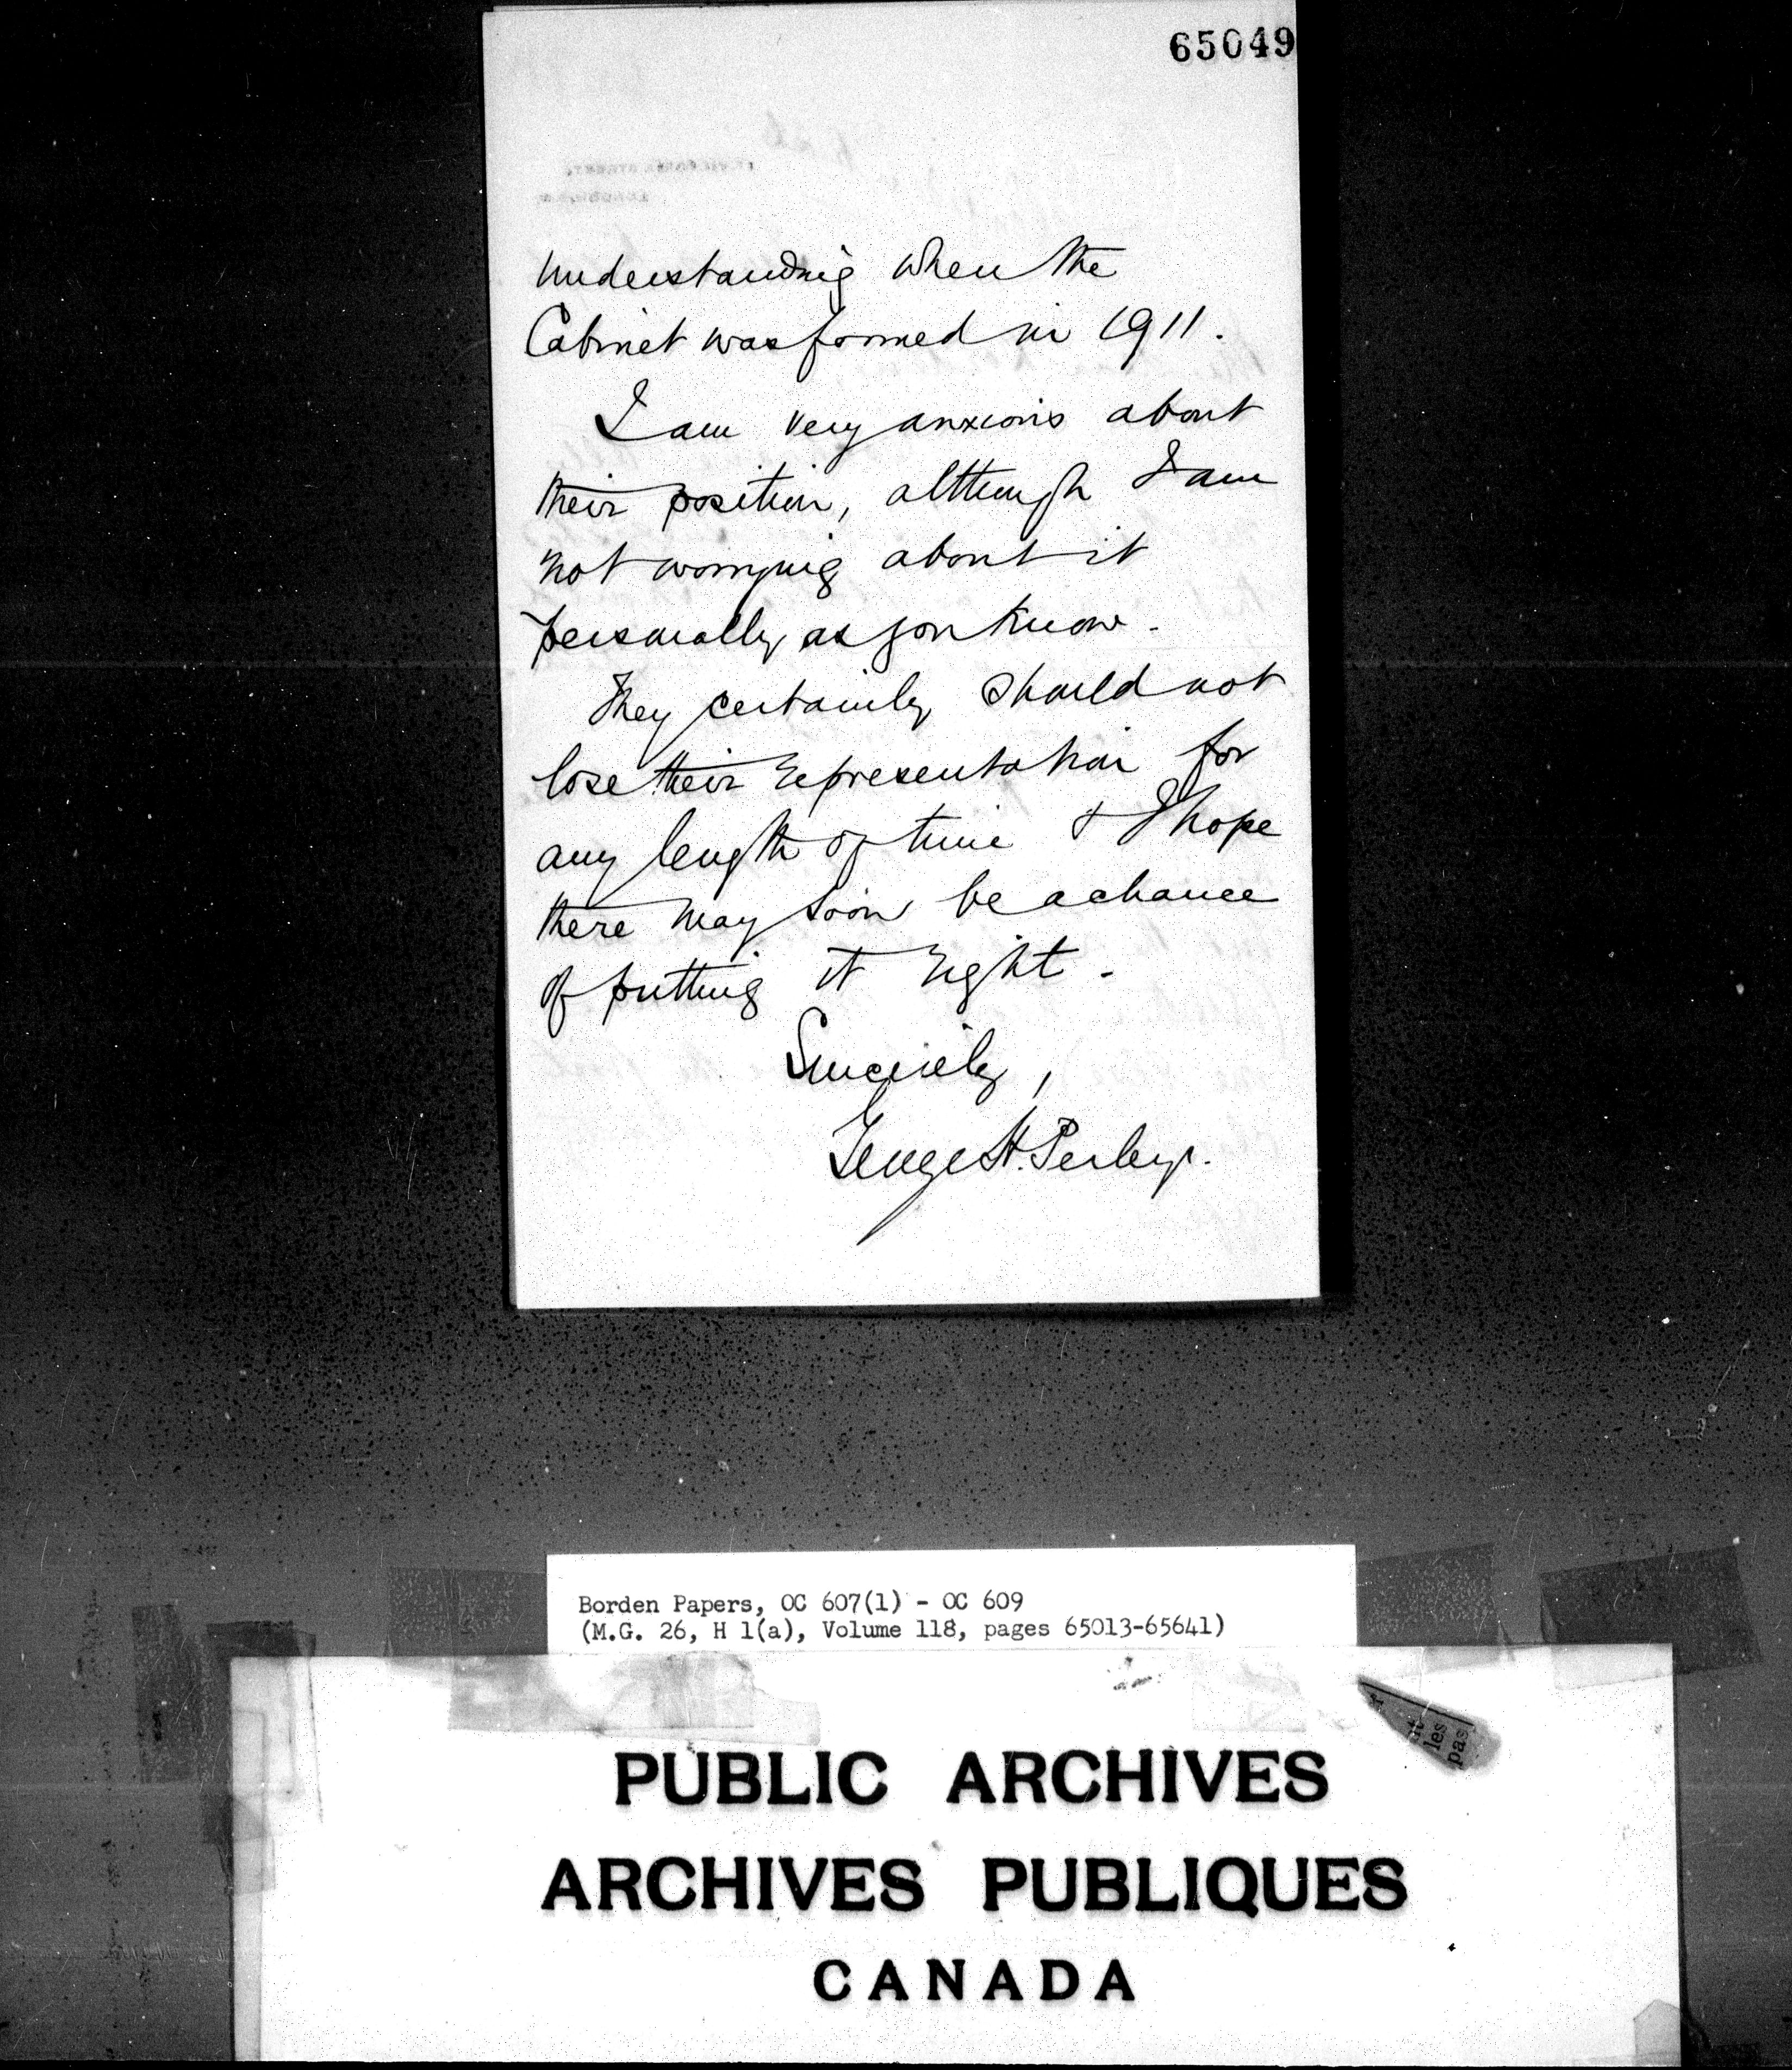 65049
understanding when the
Cabinet was formed in 1911.
I am very anxious about
their position, although I am
not worrying about it
personally, as you know.
They certainly should not
lose their representation for
any length of time & I hope
there may soon be a chance
of putting it right.
Sincerely,
George H. Perley.
Borden Papers, OC 607(1) - OC 609
(M.G. 26, H 1(a), Volume 118, pages 65013-65641)
les
pas
PUBLIC ARCHIVES
ARCHIVES PUBLIQUES
CANADA